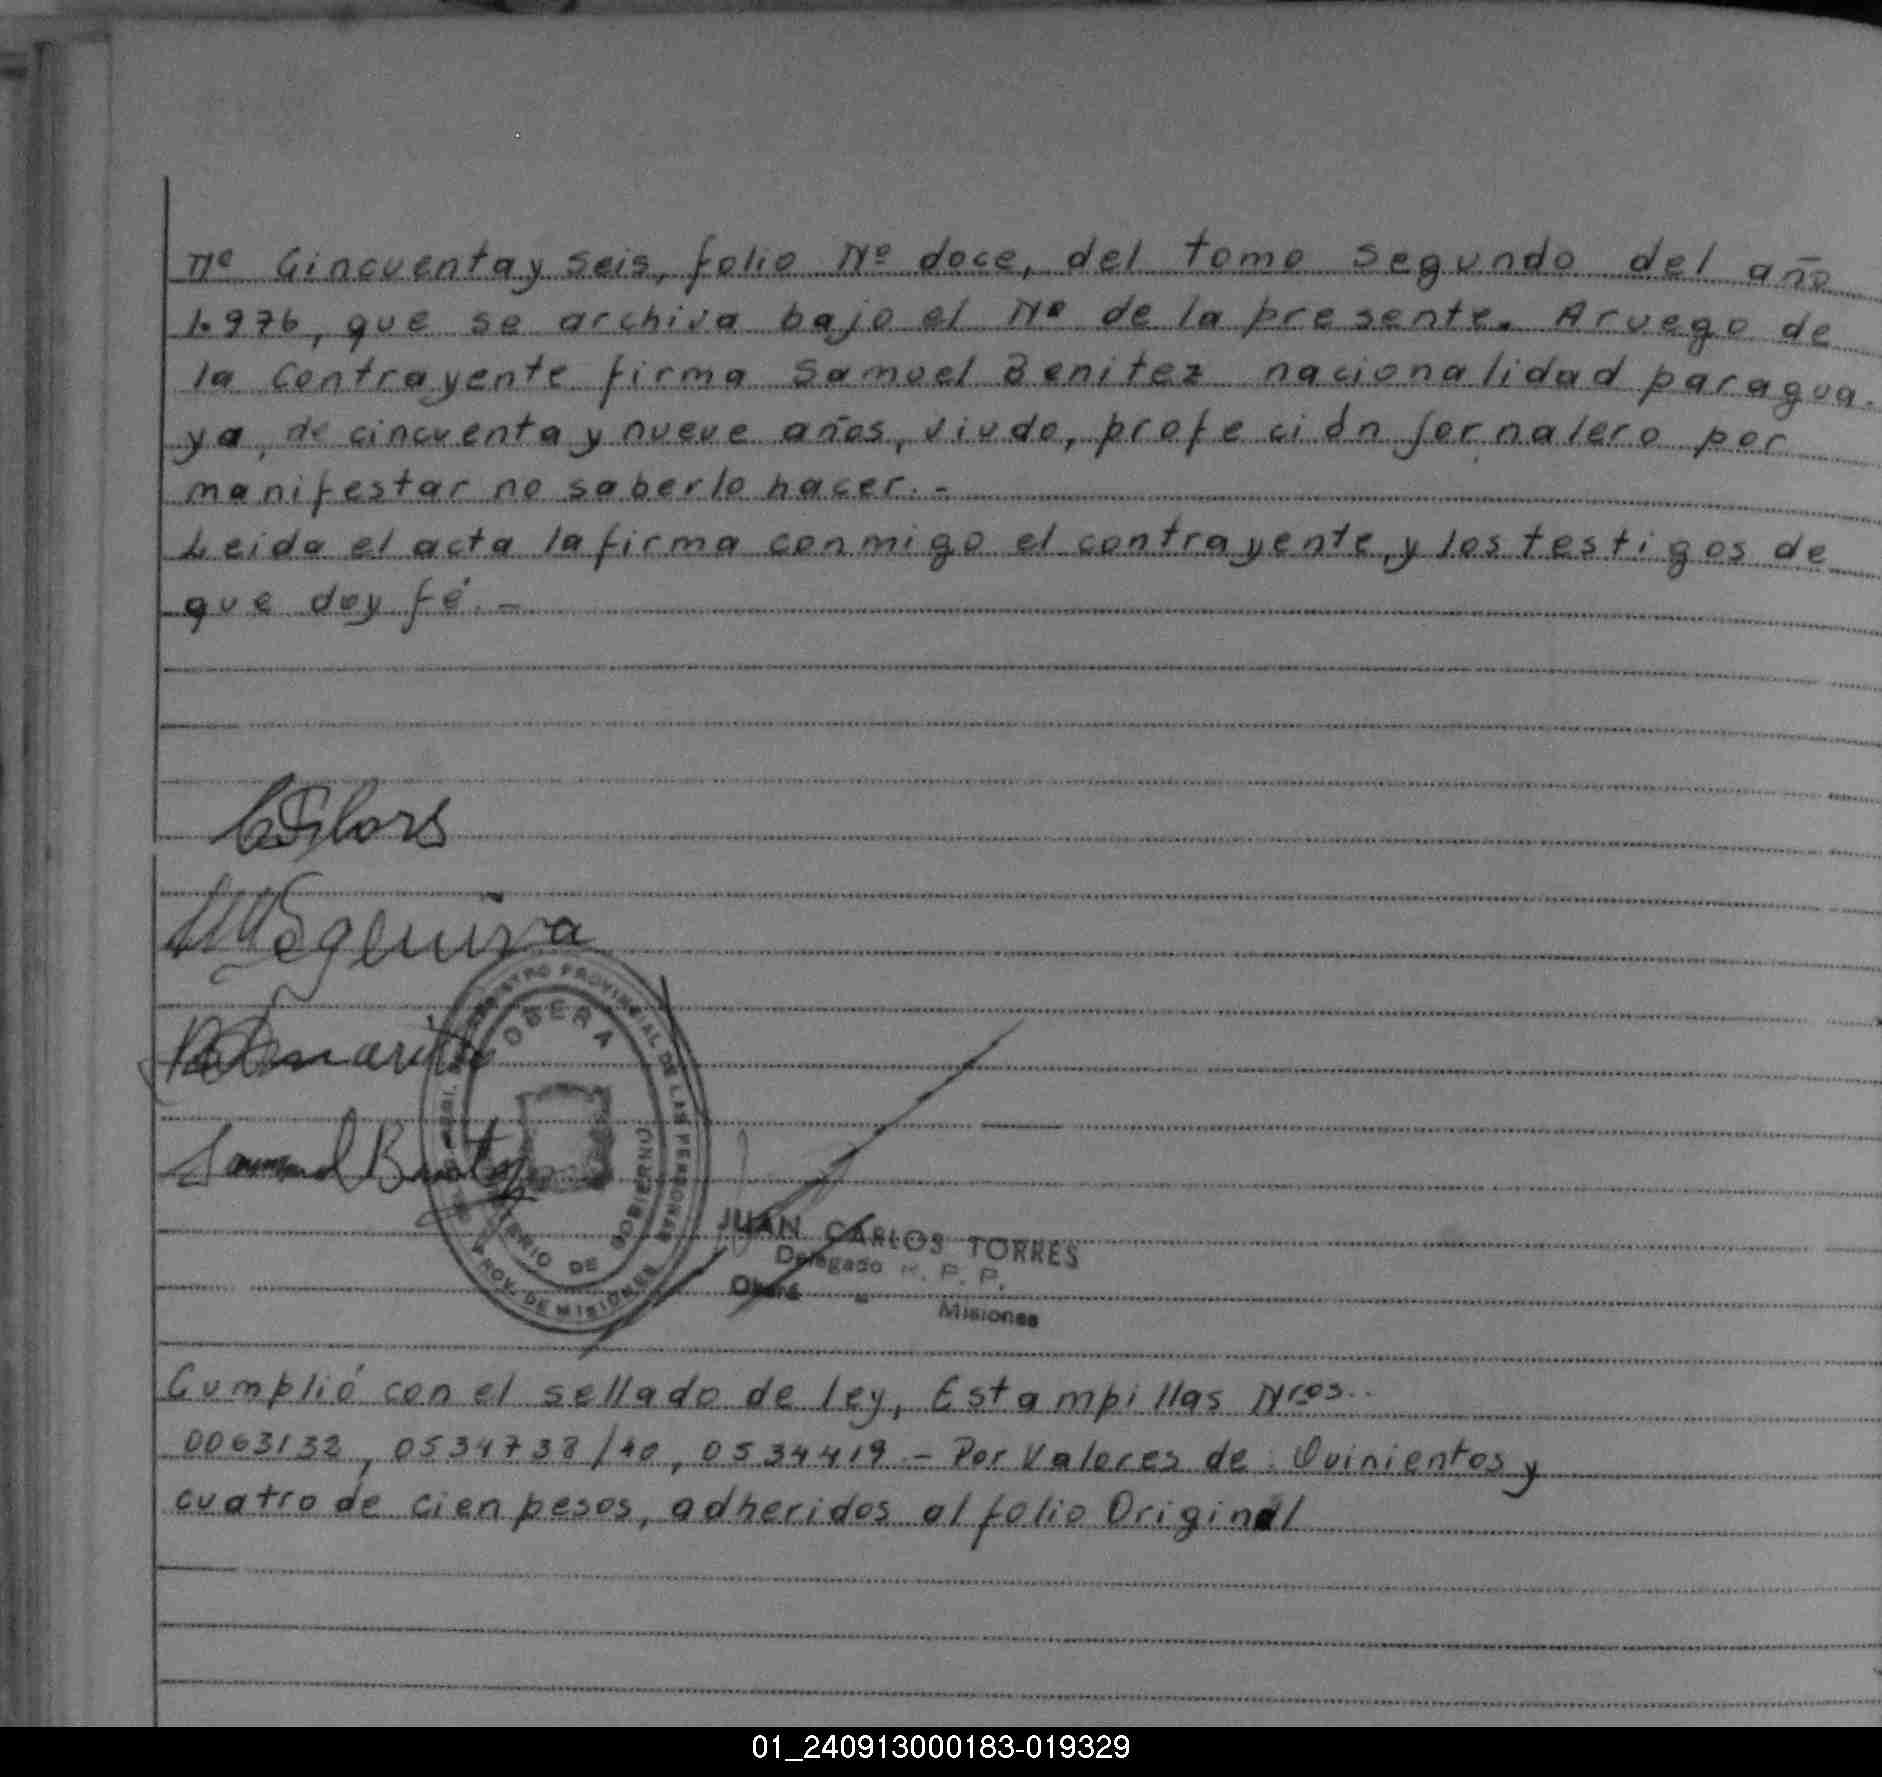 Nº Cincuenta y seis, folio Nº doce, del tomo segundo del año
1.976, que se archiva bajo el Nº de la presente. A ruego de
la contrayente firma Samuel Benitez nacionalidad paragua-
ya, de cincuenta y nueve años, viudo, profeción jornalero por
manifestar no saberlo hacer.-
Leida el acta la firma conmigo el contrayente, y los testigos de
que doy fé.-
Samuel Benitez
REGISTRO PROVINCIAL DE LAS PERSONAS
OBERA
DE GOBIERNO
PROV. DE MISIONES
JUAN CARLOS TORRES
Delegado R. P. P.
Oberá - Misiones
Cumplió con el sellado de ley, Estampillas Nros..
0063132, 0534738/40, 0534419.- Por Valores de: Quinientos y
cuatro de cien pesos, adheridos al folio Original
01_240913000183-019329